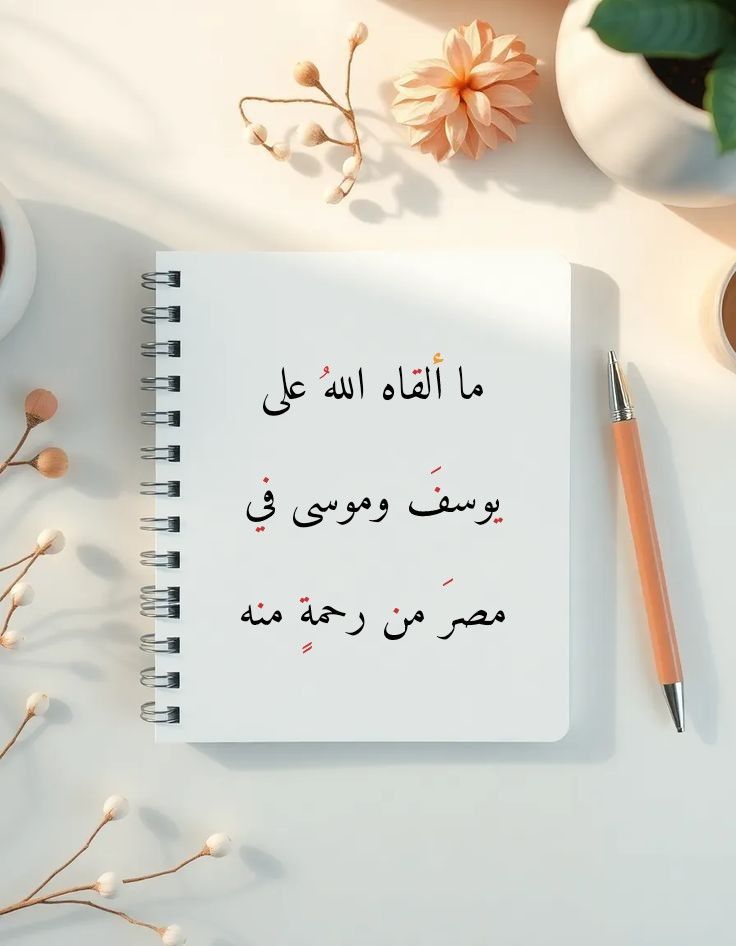 ما ألقاه اللهُ على
يوسفَ وموسى في
مصرَ من رحمةٍ منه